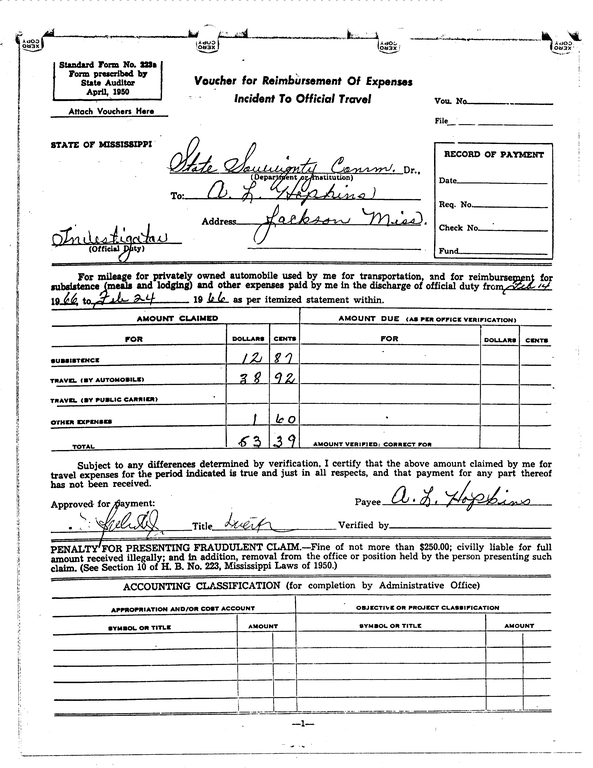 XERO COPY XERO COPY XERO COPY XERO COPY
Standard Form No. 223a
Form prescribed by
State Auditor
April, 1950
Attach Vouchers Here
Voucher for Reimbursement Of Expenses
Incident To Official Travel
Vou. No.
File
STATE OF MISSISSIPPI
State Sovereignty Comm. Dr.,
(Department or Institution)
To: A. L. Hopkins
Address Jackson Miss.
Investigator
(Official Duty)
RECORD OF PAYMENT
Date
Req. No.
Check No.
Fund
For mileage for privately owned automobile used by me for transportation, and for reimbursement for
subsistence (meals and lodging) and other expenses paid by me in the discharge of official duty from Feb 14
1966 to Feb 24 1966 as per itemized statement within.
AMOUNT CLAIMED AMOUNT DUE (AS PER OFFICE VERIFICATION)
FOR DOLLARS CENTS FOR DOLLARS CENTS
SUBSISTENCE 12 87
TRAVEL (BY AUTOMOBILE) 38 92
TRAVEL (BY PUBLIC CARRIER)
OTHER EXPENSES 1 60
TOTAL 53 39 AMOUNT VERIFIED: CORRECT FOR
Subject to any differences determined by verification, I certify that the above amount claimed by me for
travel expenses for the period indicated is true and just in all respects, and that payment for any part thereof
has not been received.
Approved for payment: Payee A. L. Hopkins
Title Verified by
PENALTY FOR PRESENTING FRAUDULENT CLAIM.—Fine of not more than $250.00; civilly liable for full
amount received illegally; and in addition, removal from the office or position held by the person presenting such
claim. (See Section 10 of H. B. No. 223, Mississippi Laws of 1950.)
ACCOUNTING CLASSIFICATION (for completion by Administrative Office)
APPROPRIATION AND/OR COST ACCOUNT OBJECTIVE OR PROJECT CLASSIFICATION
SYMBOL OR TITLE AMOUNT SYMBOL OR TITLE AMOUNT
—1—